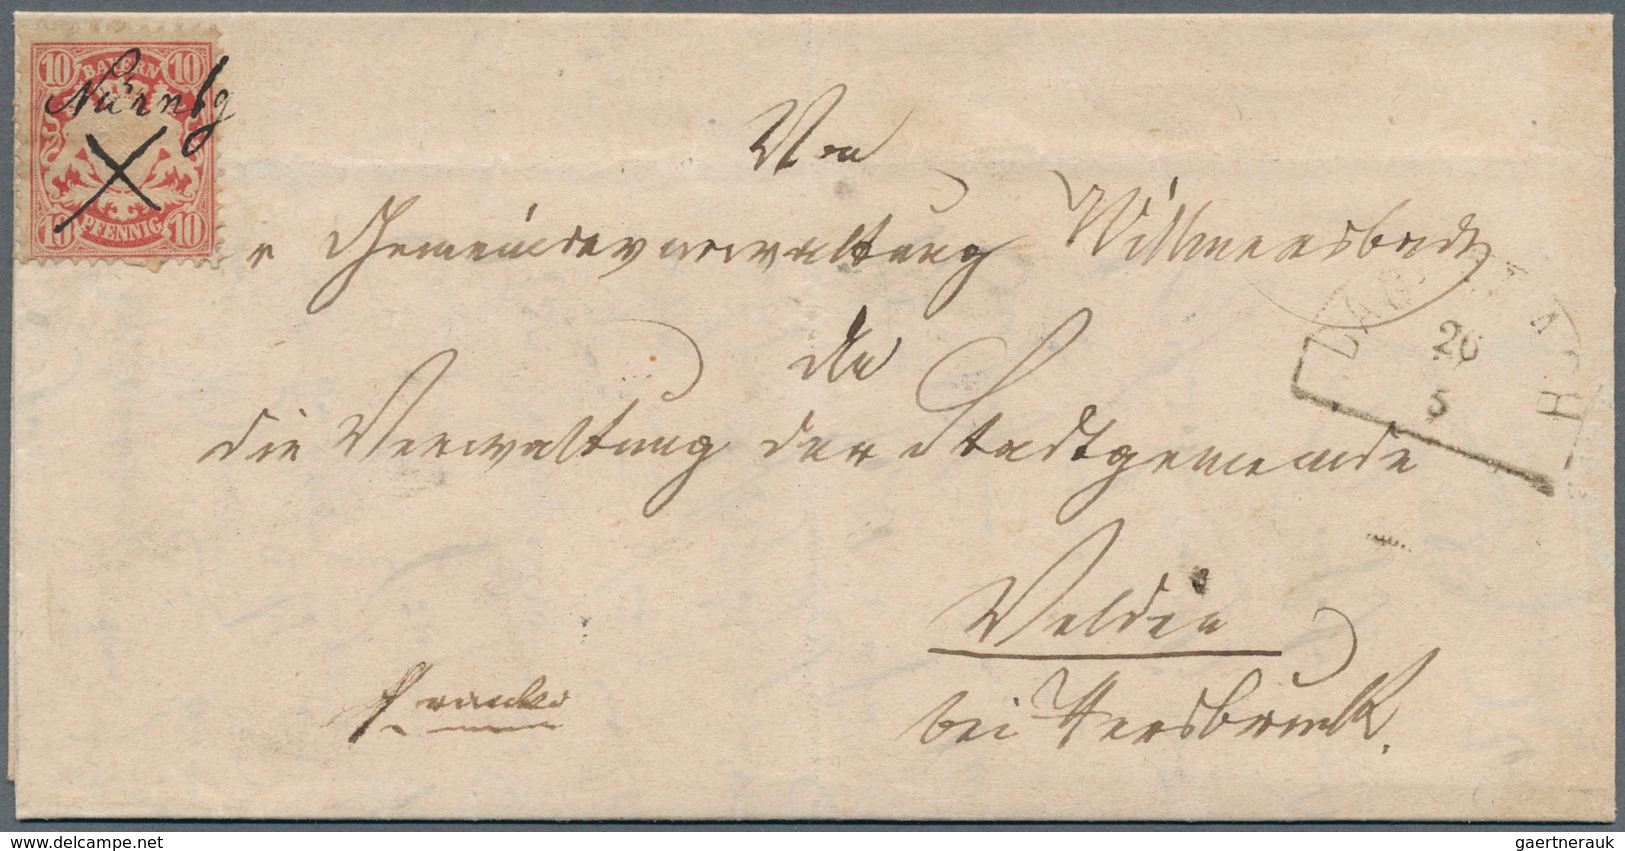 10 BAYERN 10
Nürnbg
10 PFENNIG 10
Von
Gemeindeverwaltung Willmersbach
die
die Verwaltung der Stadtgemeinde
26
5
Velden
bei Hersbruck.
franko
www.delcampe.net
gaertnerauk